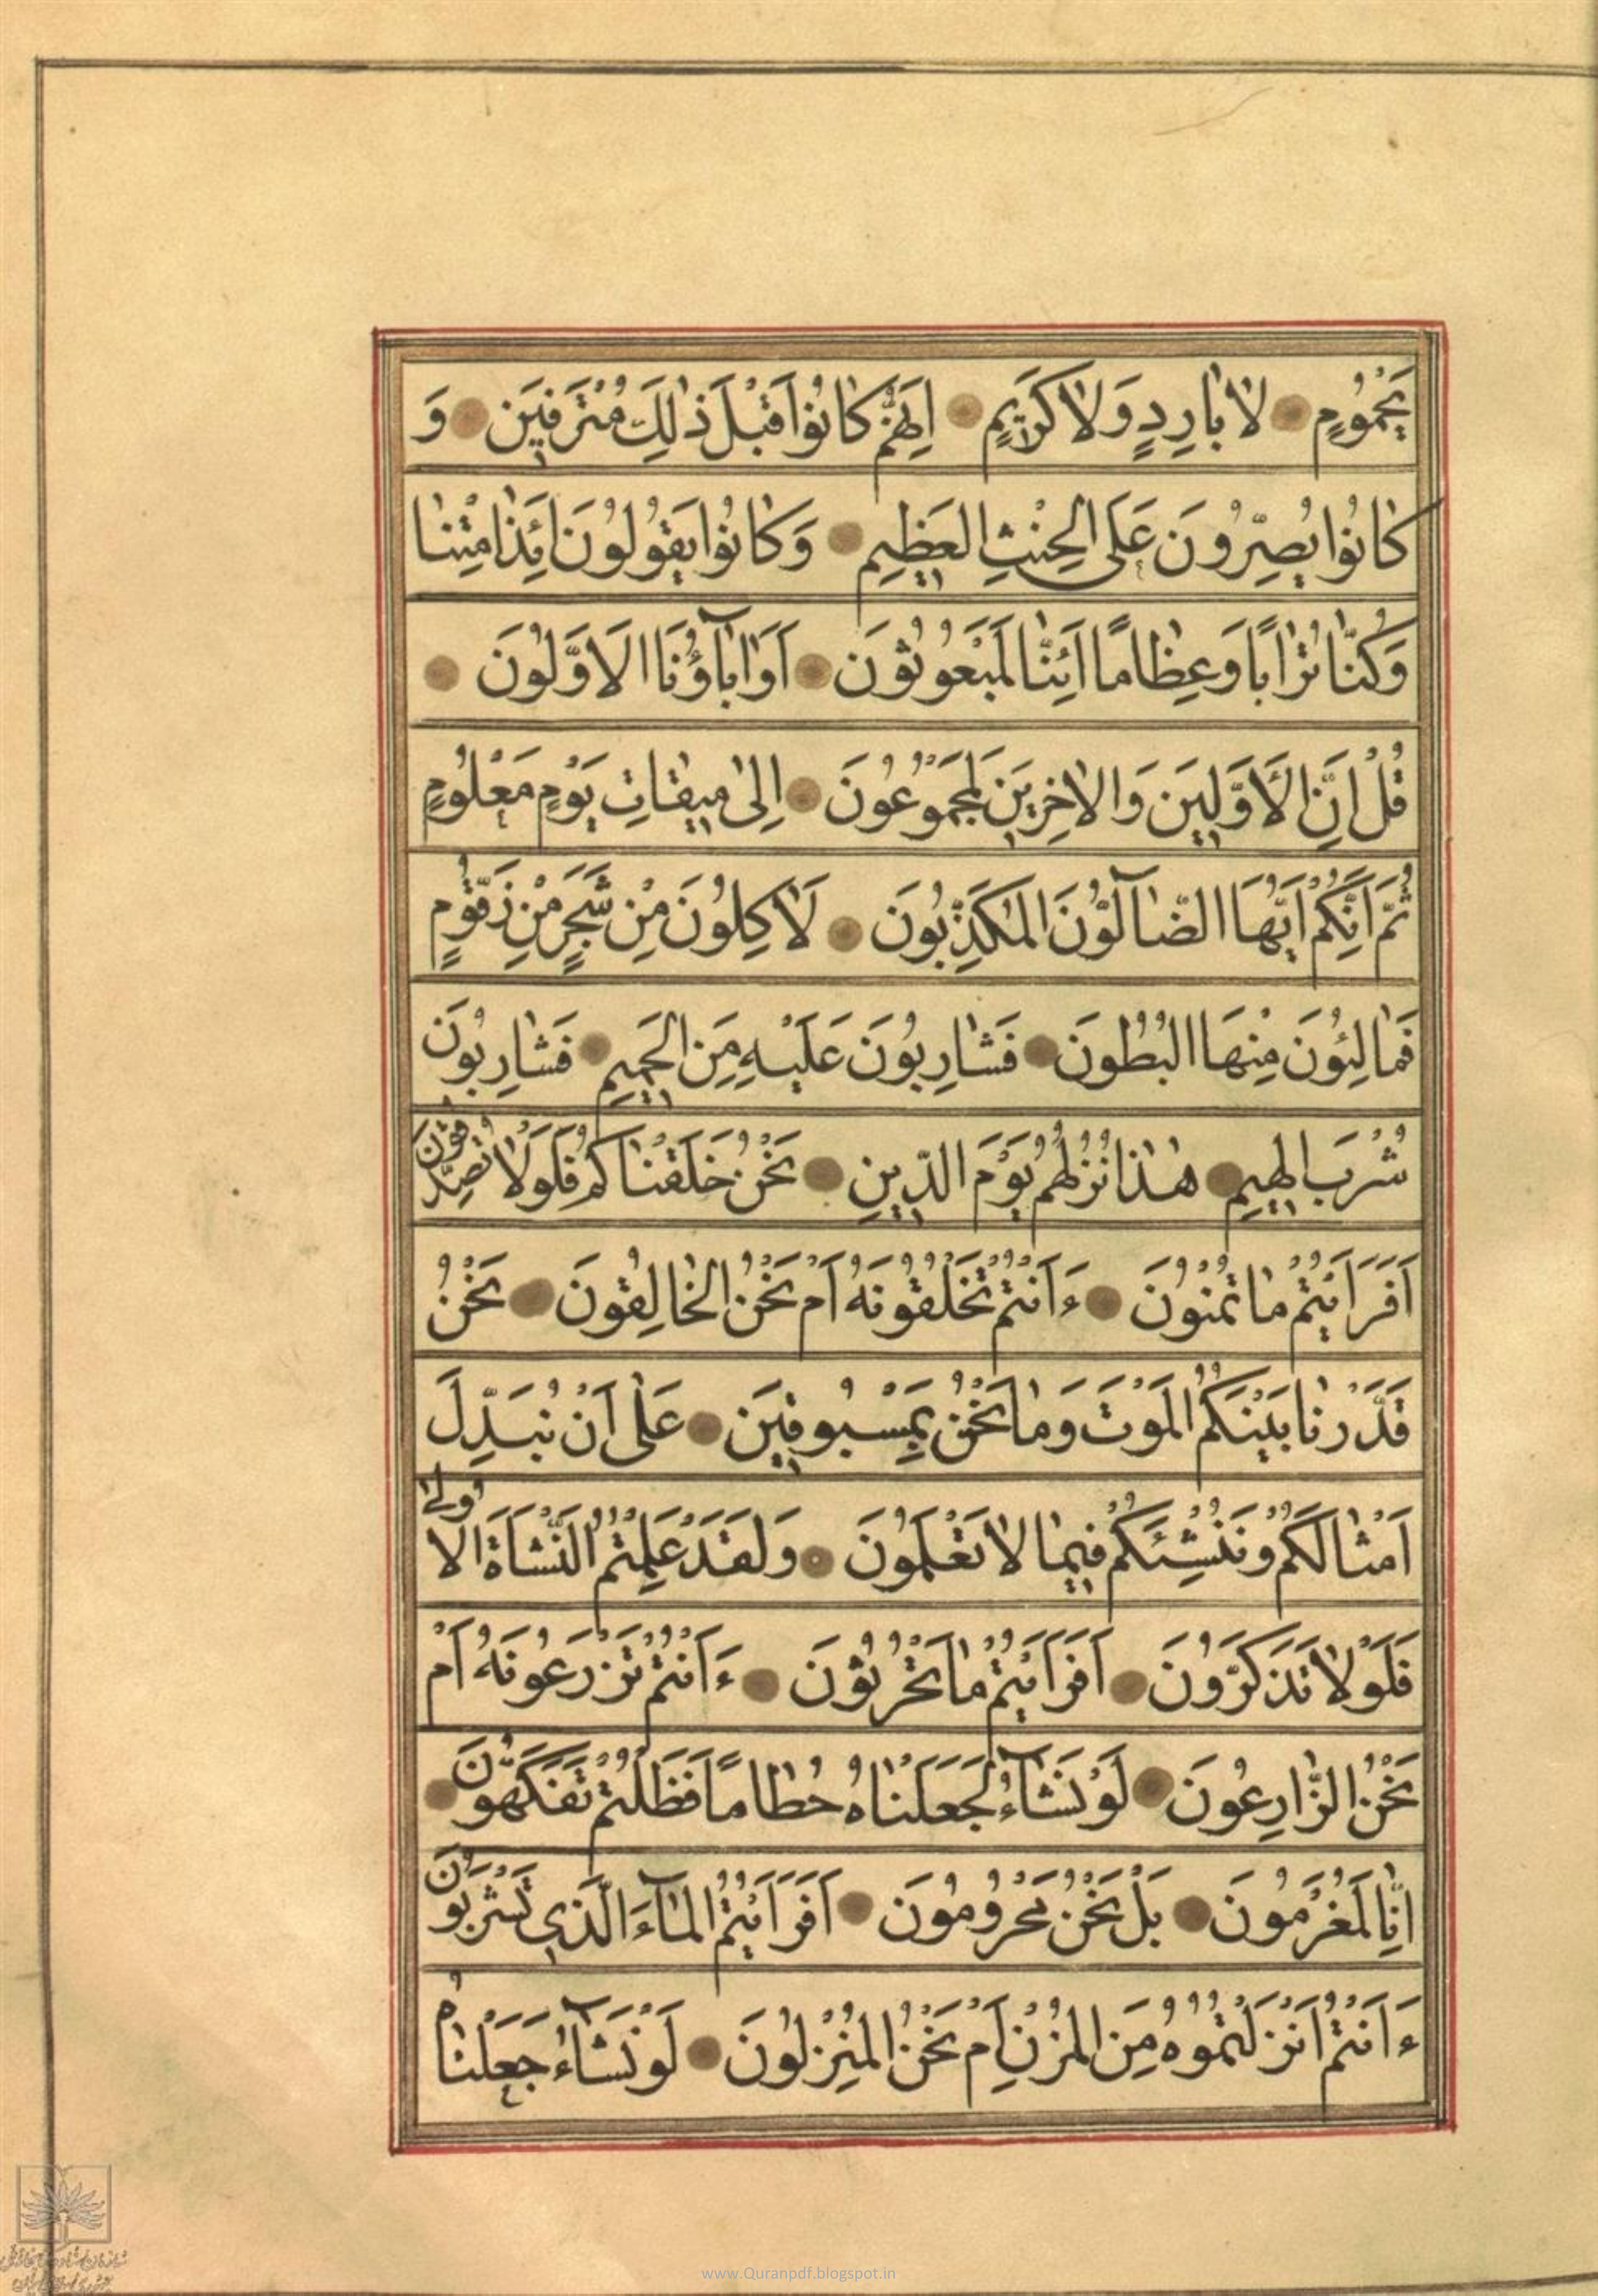 يَحْمُومٍ لَا بَارِدٍ وَلَا كَرِيمٍ اِنَّهُمْ كَانُوا قَبْلَ ذٰلِكَ مُتْرَفِينَ وَ
كَانُوا يُصِرُّونَ عَلَى الْحِنْثِ الْعَظِيمِ وَكَانُوا يَقُولُونَ اَئِذَا مِتْنَا
وَكُنَّا تُرَابًا وَعِظَامًا اَئِنَّا لَمَبْعُوثُونَ اَوَاٰبَآؤُنَا الْاَوَّلُونَ
قُلْ اِنَّ الْاَوَّلِينَ وَالْاٰخِرِينَ لَمَجْمُوعُونَ اِلىٰ مِيقَاتِ يَوْمٍ مَعْلُومٍ
ثُمَّ اِنَّكُمْ اَيُّهَا الضَّآلُّونَ الْمُكَذِّبُونَ لَاٰكِلُونَ مِنْ شَجَرٍ مِنْ زَقُّومٍ
فَمَالِئُونَ مِنْهَا الْبُطُونَ فَشَارِبُونَ عَلَيْهِ مِنَ الْحَمِيمِ فَشَارِبُونَ
شُرْبَ الْهِيمِ هٰذَا نُزُلُهُمْ يَوْمَ الدِّينِ نَحْنُ خَلَقْنَاكُمْ فَلَوْلَا تُصَدِّقُونَ
اَفَرَاَيْتُمْ مَا تُمْنُونَ ءَاَنْتُمْ تَخْلُقُونَهُ اَمْ نَحْنُ الْخَالِقُونَ نَحْنُ
قَدَّرْنَا بَيْنَكُمُ الْمَوْتَ وَمَا نَحْنُ بِمَسْبُوقِينَ عَلىٰ اَنْ نُبَدِّلَ
اَمْثَالَكُمْ وَنُنْشِئَكُمْ فِيمَا لَا تَعْلَمُونَ وَلَقَدْ عَلِمْتُمُ النَّشْاَةَ الْاُولىٰ
فَلَوْلَا تَذَكَّرُونَ اَفَرَاَيْتُمْ مَا تَحْرُثُونَ ءَاَنْتُمْ تَزْرَعُونَهُ اَمْ
نَحْنُ الزَّارِعُونَ لَوْ نَشَآءُ لَجَعَلْنَاهُ حُطَامًا فَظَلْتُمْ تَفَكَّهُونَ
اِنَّا لَمُغْرَمُونَ بَلْ نَحْنُ مَحْرُومُونَ اَفَرَاَيْتُمُ الْمَآءَ الَّذِي تَشْرَبُونَ
ءَاَنْتُمْ اَنْزَلْتُمُوهُ مِنَ الْمُزْنِ اَمْ نَحْنُ الْمُنْزِلُونَ لَوْ نَشَآءُ جَعَلْنَاهُ
www.Quranpdf.blogspot.in